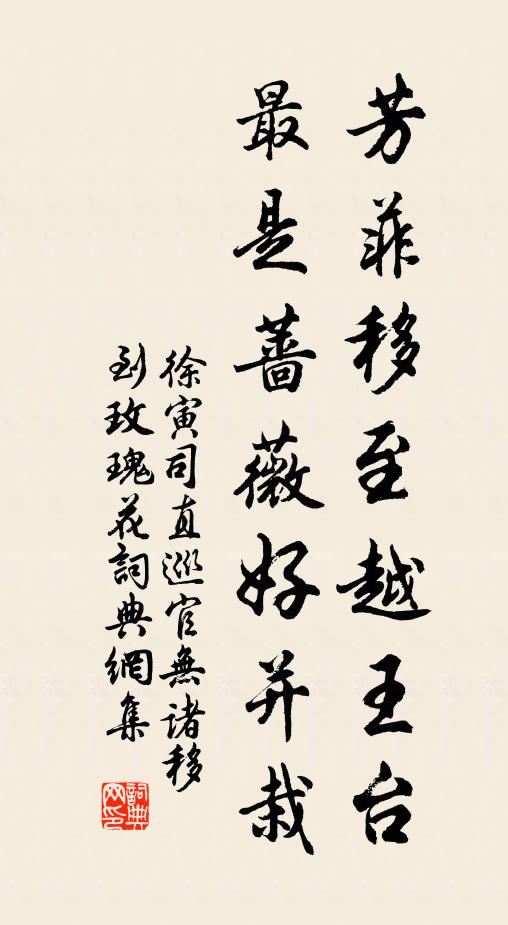 芳菲移至越王台
最是蔷薇好并栽
徐寅司直巡官無諸移
到玫瑰花詞典網集
詞典
网印